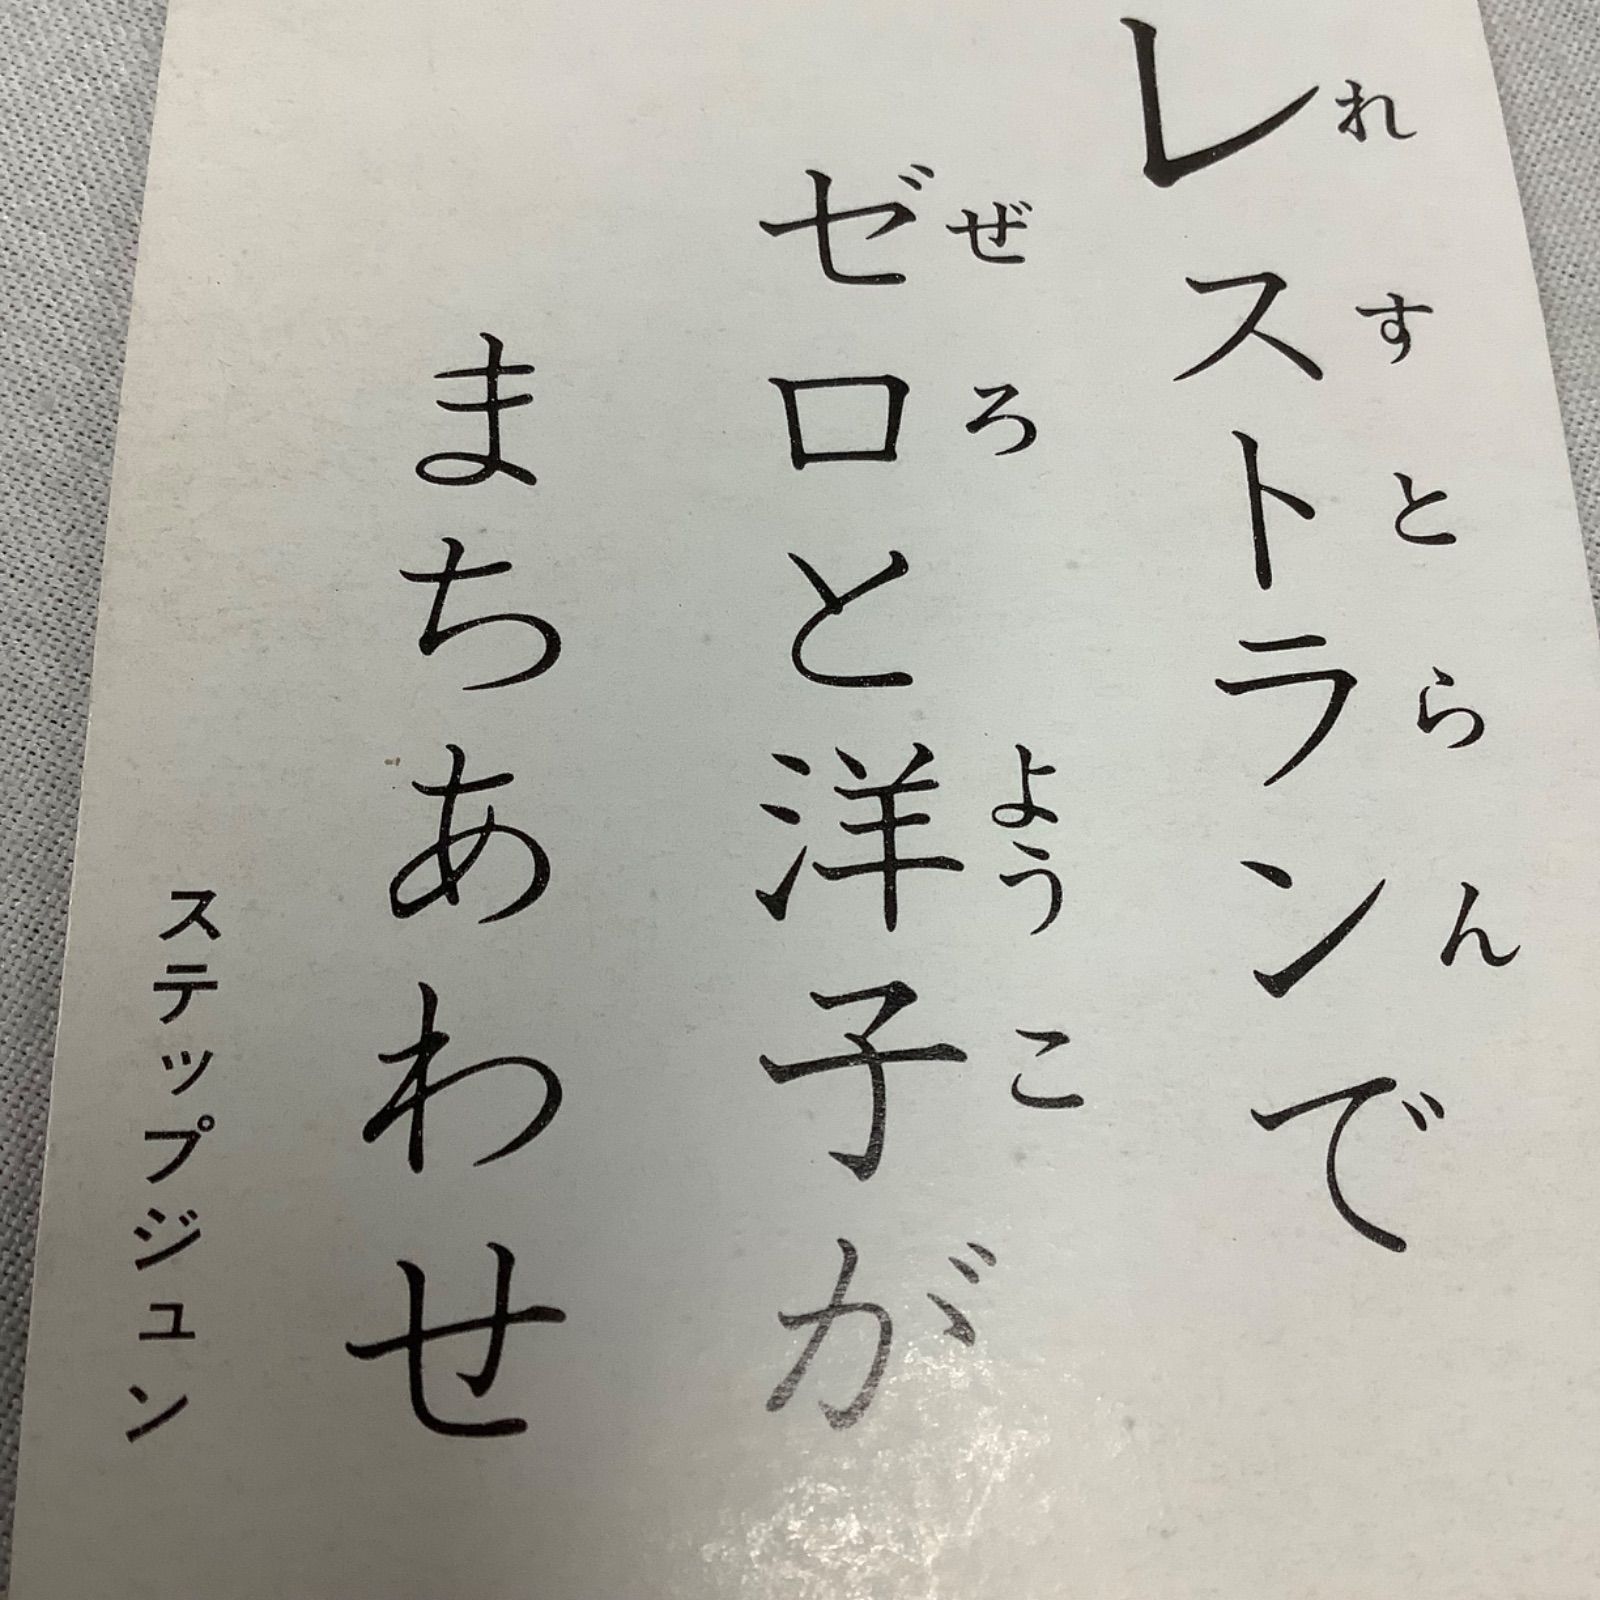 レストランで
れすとらん
ゼロと洋子が
ぜろ ようこ
まちあわせ
ステップジュン